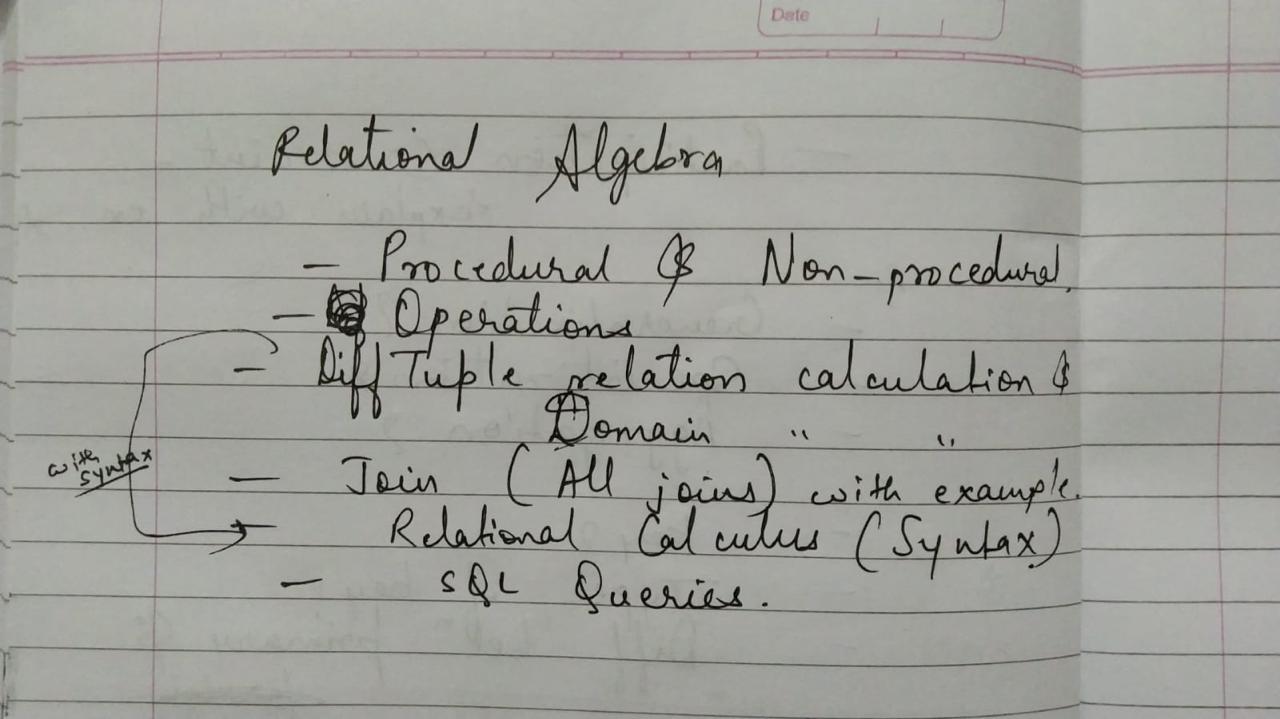 Date
Relational Algebra
- Procedural & Non-procedural.
- Operations
- Diff Tuple relation calculation &
Domain " "
with syntax
- Join (All joins) with example.
- Relational Calculus (Syntax)
- SQL Queries.